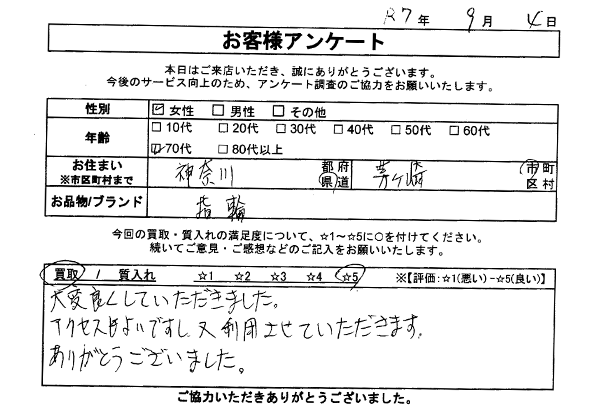 R7年 9月 4日
お客様アンケート
本日はご来店いただき、誠にありがとうございます。
今後のサービス向上のため、アンケート調査のご協力をお願いいたします。
性別 ☑ 女性 □ 男性 □ その他
年齢 □ 10代 □ 20代 □ 30代 □ 40代 □ 50代 □ 60代
☑ 70代 □ 80代以上
お住まい ※市区町村まで 神奈川 都府県道 茅ヶ崎 市町区村
お品物/ブランド 指輪
今回の買取・質入れの満足度について、☆1~☆5に○を付けてください。
続いてご意見・ご感想などのご記入をお願いいたします。
買取 / 質入れ ☆1 ☆2 ☆3 ☆4 ☆5 ※【評価:☆1(悪い)-☆5(良い)】
大変良くしていただきました。
アクセスもよいですし又利用させていただきます。
ありがとうございました。
ご協力いただきありがとうございました。